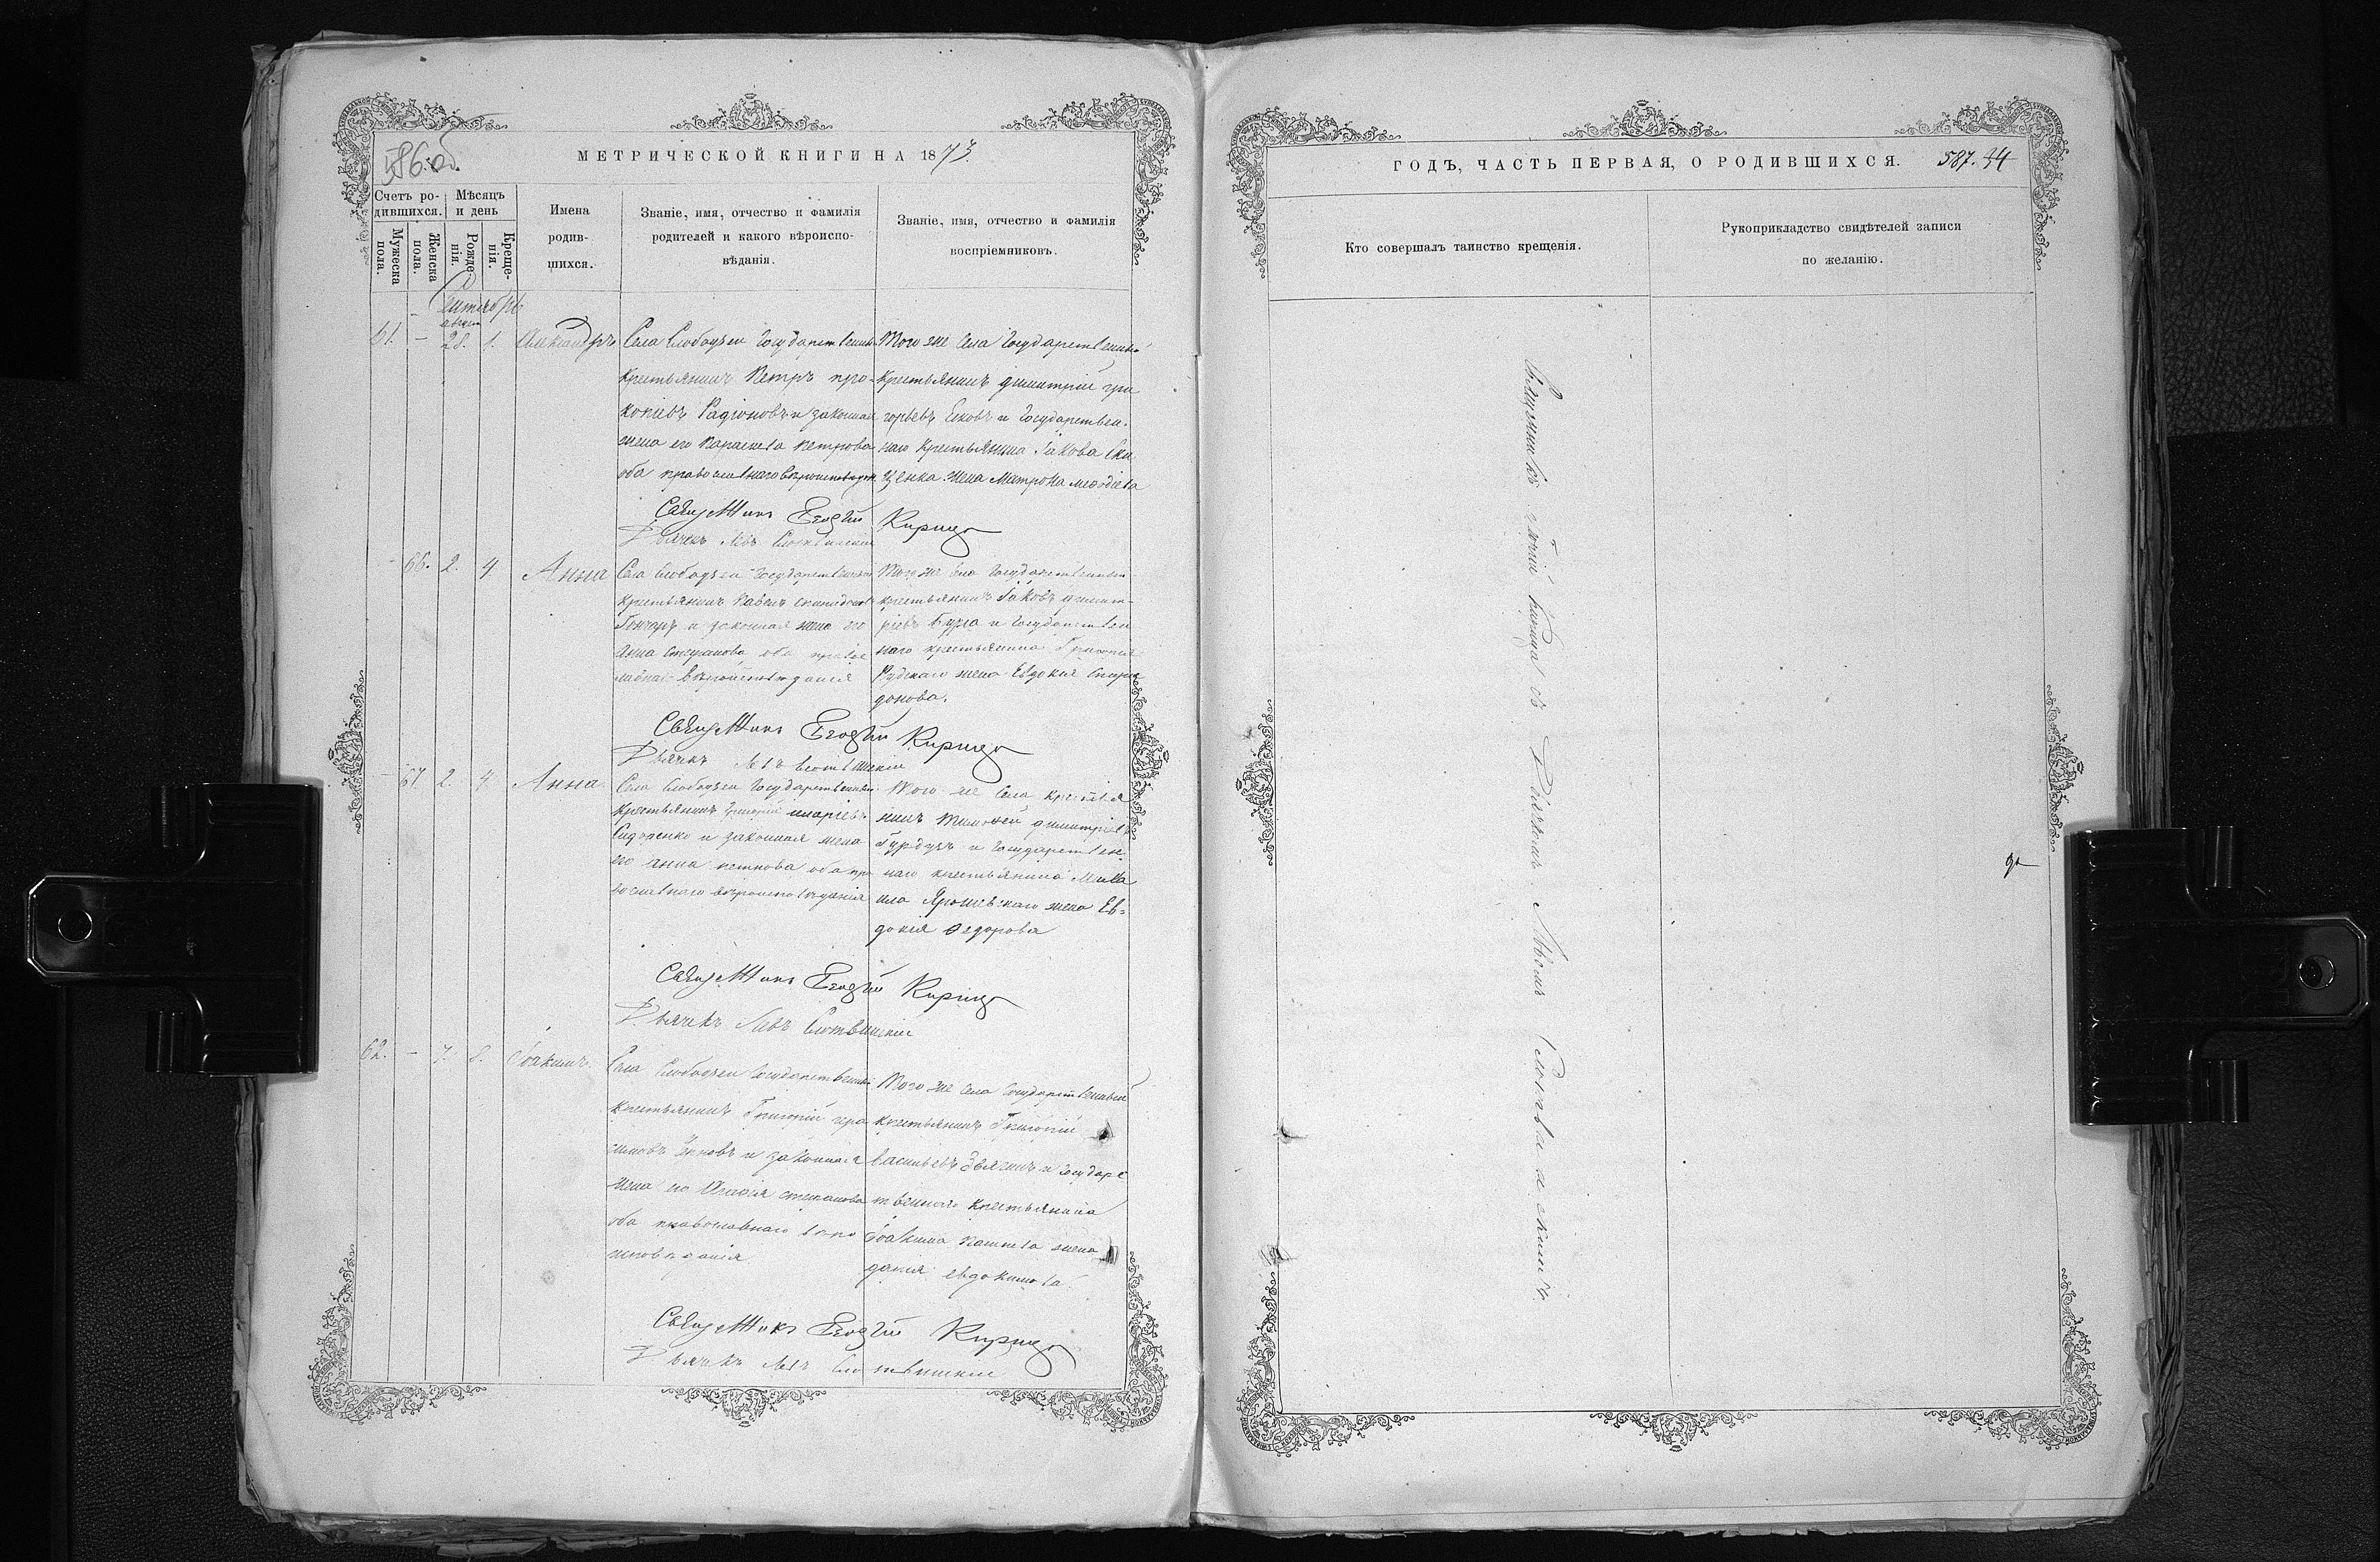 586 об.
МЕТРИЧЕСКОЙ КНИГИ НА 1873.
Счетъ ро-
дившихся.
Мѣсяцъ
и день
Мужеска
пола.
Женска
пола.
Рожде-
нія.
Креще-
нія.
Имена
родив-
шихся.
Званіе, имя, отчество и фамилія
родителей и какого вѣроиспо-
вѣданія.
Званіе, имя, отчество и фамилія
воспріемниковъ.
Сентябрь
61. - 28. 1. Александръ
Села Слободзеи Государственный
крестьянинъ Петръ про-
копіевъ Радіоновъ и законная
жена его Параскева Петрова
оба православнаго вѣроисповѣданія
Того же села Государственный
крестьянинъ димитрій гри
горьевъ и Государствен-
наго крестьянина Іакова
жена Матрона меѳодіева
Священникъ Георгій Кирица
Дьячекъ Левъ
- 66. 2. 4. Анна
Села Слободзеи Государственный
крестьянинъ Павелъ
Гончаръ и законная жена его
Анна Стефанова оба право
славнаго вѣроисповѣданія
Того же села Государственный
крестьянинъ Іаковъ димит-
ріевъ и Государствен
наго крестьянина Григорія
Рудскаго жена Евдокія Спири
донова.
Священникъ Георгій Кирица
Дьячекъ Левъ
- 67. 2. 4. Анна
Села Слободзеи Государственный
крестьянинъ Григорій
Сидоренко и законная жена
его Анна оба пра
вославнаго вѣроисповѣданія
Того же села крестья
нинъ Тимоѳей димитріевъ
и Государствен
наго крестьянина Миха
ила Ярошевскаго жена Ев-
докія Ѳедорова
Священникъ Георгій Кирица
Дьячекъ Левъ
62. - 7. 8. Іоакимъ
Села Слободзеи Государственный
крестьянинъ Григорій гера
симовъ и законная
жена его стефанова
оба православнаго вѣро
исповѣданія
Того же села Государственный
крестьянинъ Григорій
васильевъ Звягинъ и Государс
твеннаго крестьянина
Іоакима жена
евдокимова.
Священникъ Георгій Кирица
Дьячекъ Левъ
ГОДЪ, ЧАСТЬ ПЕРВАЯ, О РОДИВШИХСЯ.
587. 44
Кто совершалъ таинство крещенія.
Рукоприкладство свидѣтелей записи
по желанію.
Священникъ Георгій Кирица съ Дьячкомъ Львомъ